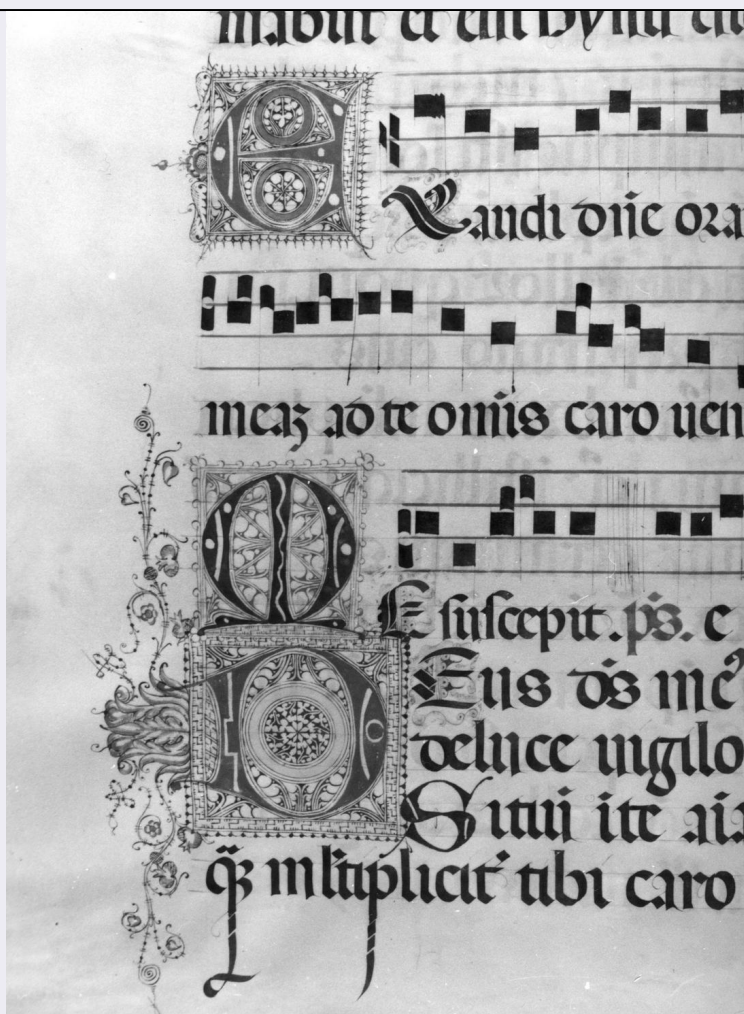 EXaudi dñe ora
meaꝫ ad te om̄is caro uen
ME suscepit. p̄s.
DEus d̄s me᾽
de luce uigilo
Sitiui ī te aīa
q̄ꝫ ml̄tiplicit᾽ tibi caro